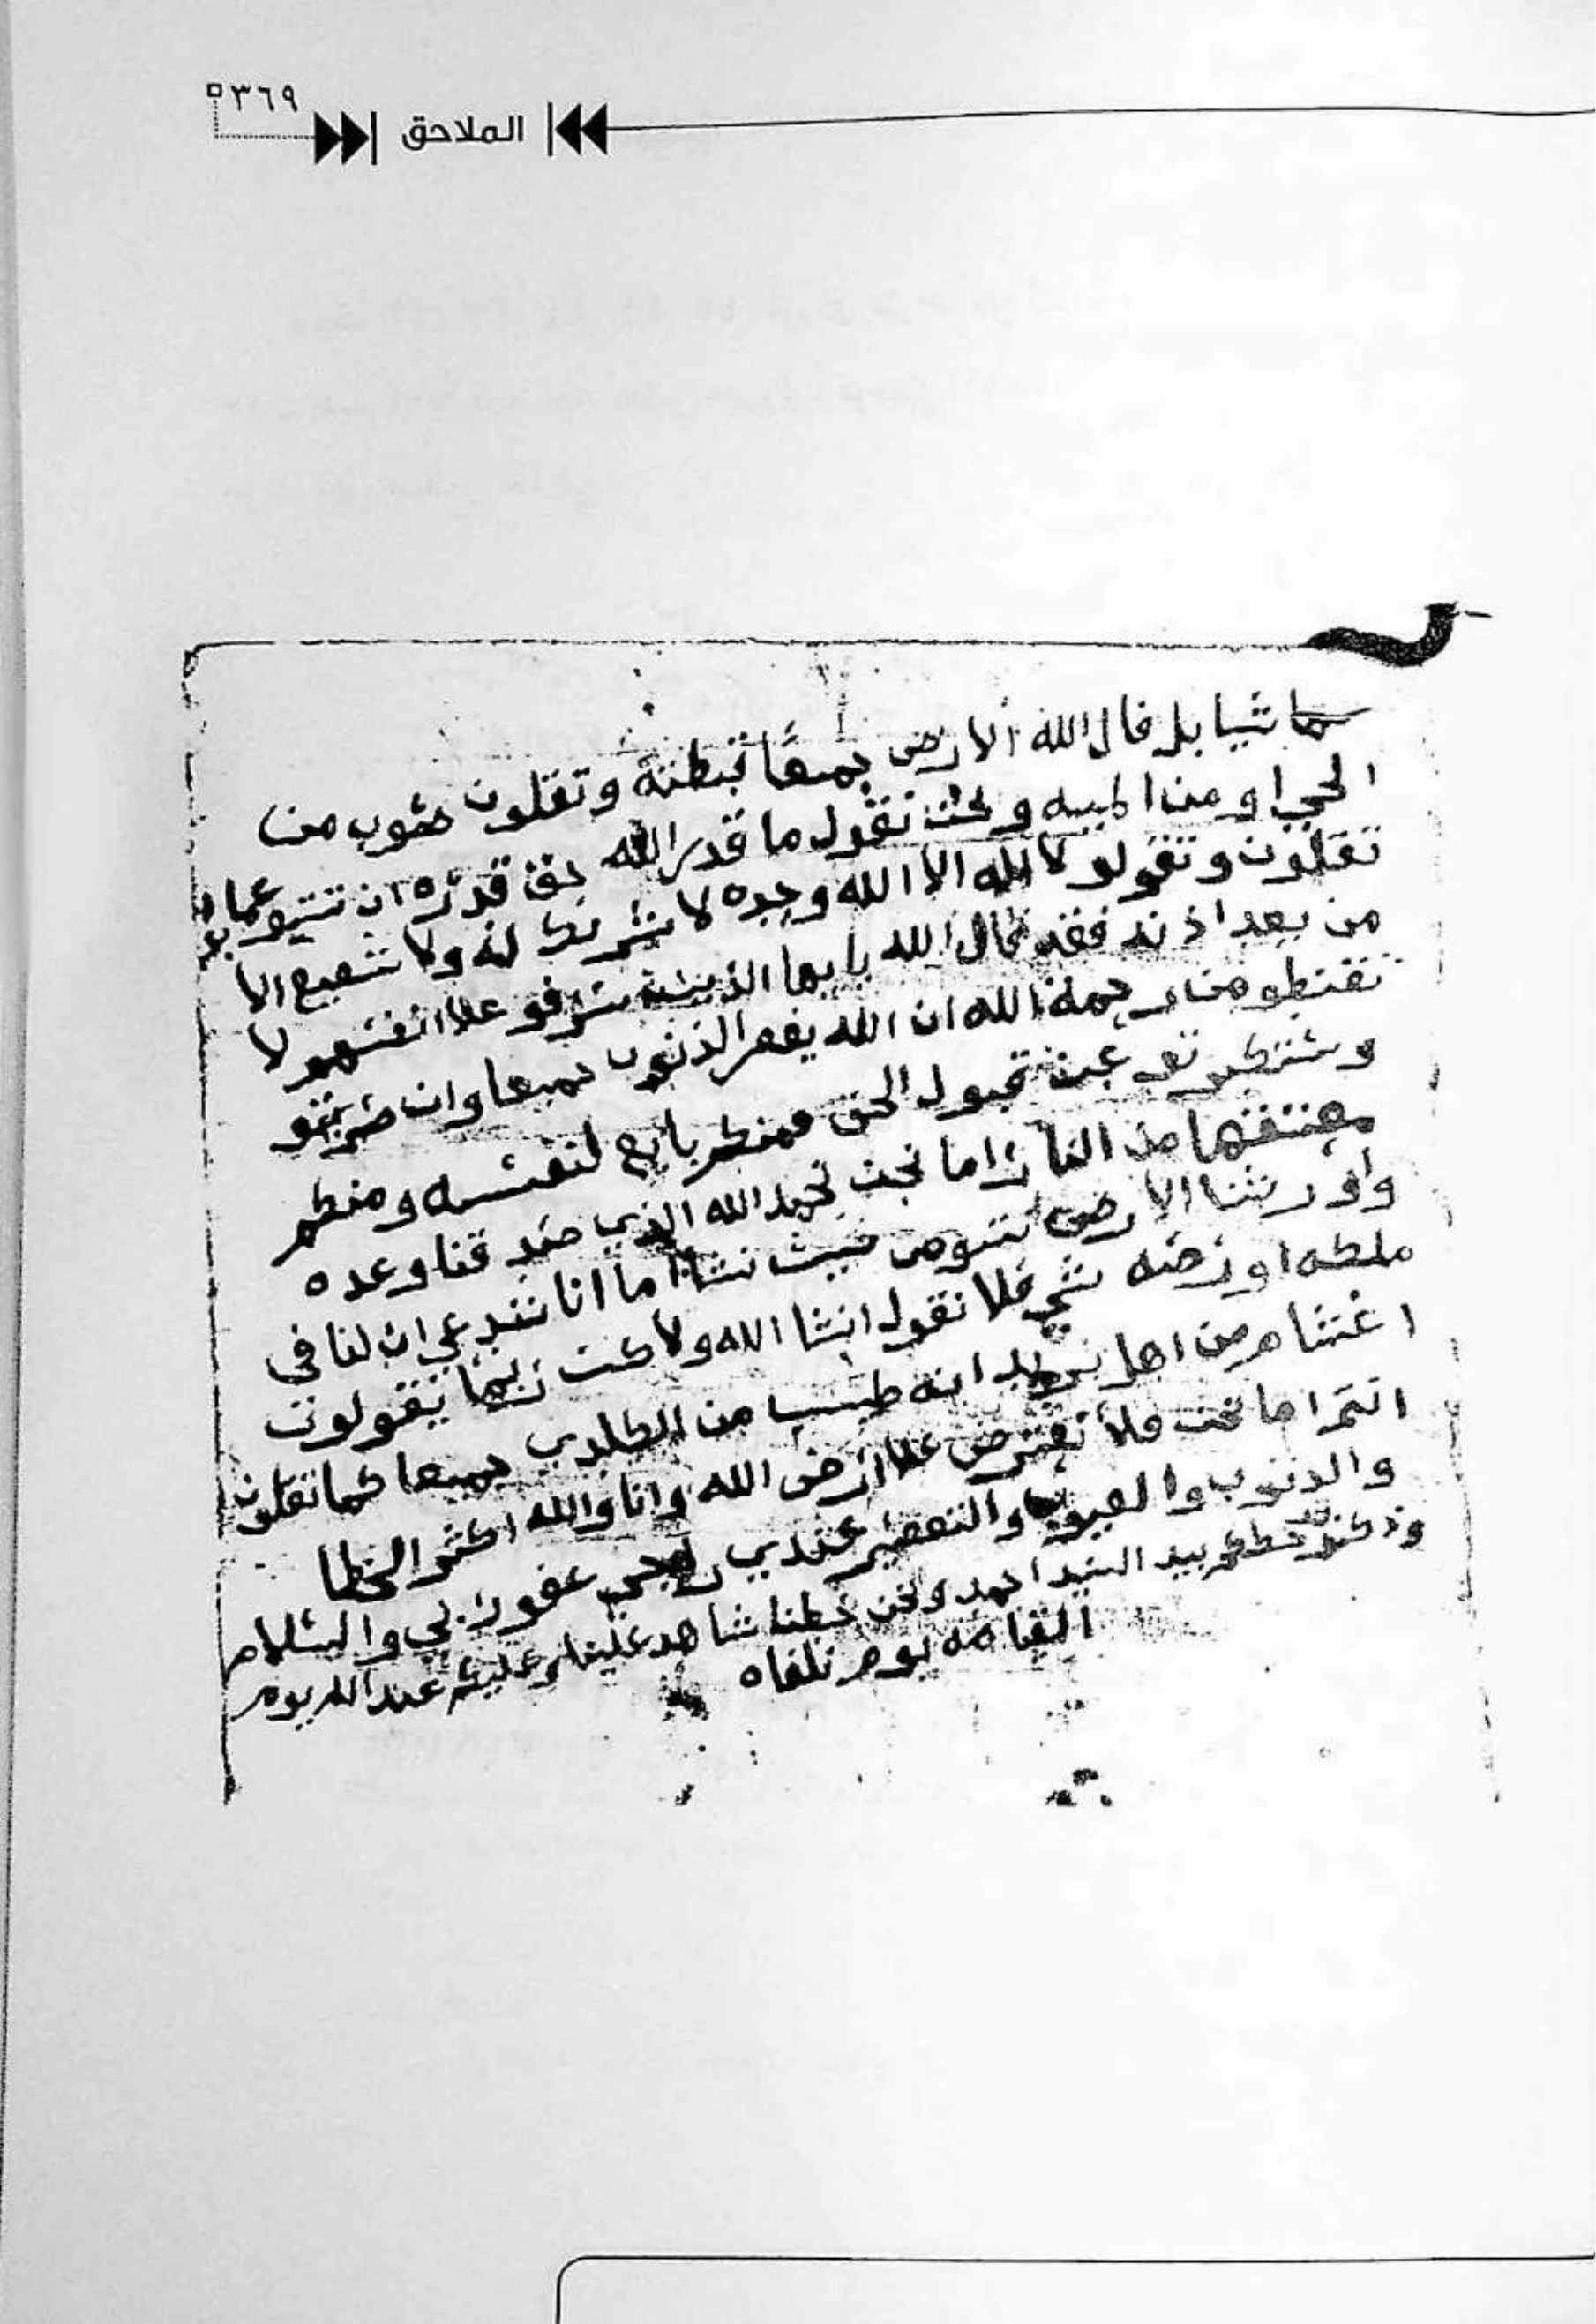 ٣٦٩
الملاحق
شيا بل قال الله الارض جميعا قبطته وتقلون من
الحي او من الميه ونحن نقول ما قدر الله حق قدره ان تتبعو
تقلون وتقولو لا اله الا الله وحده لا شريك له ولا شفيع الا
من بعد اذنه فقد قال الله يا يها الذين سرفو علا انفسهم لا
تقنطو من رحمة الله ان الله يغفر الذنوب جميعا وان
عن قبول الحق فمنكم بايع لنفسه ومنكم
معتقها من النار اما نحن نحمد الله الذي صد قنا وعده
واورثنا الارض نتبوى حيث نشا اما انا نند عي ان لنا في
ملكه او رضه فلا نقول انشا الله ولاكن ربما يقولون
من اهل انه من جميعا كما تقلون
انتم اما نحن فلا نعترض علا ارض الله وانا والله اكثر الخطا
والذنوب والعيوب والتقصير عندي عفو ربي والسلام
خطكم بيد السيد احمد ونحن خطنا شاهد علينا وعليكم عند الله يوم
القيامه يوم نلقاه